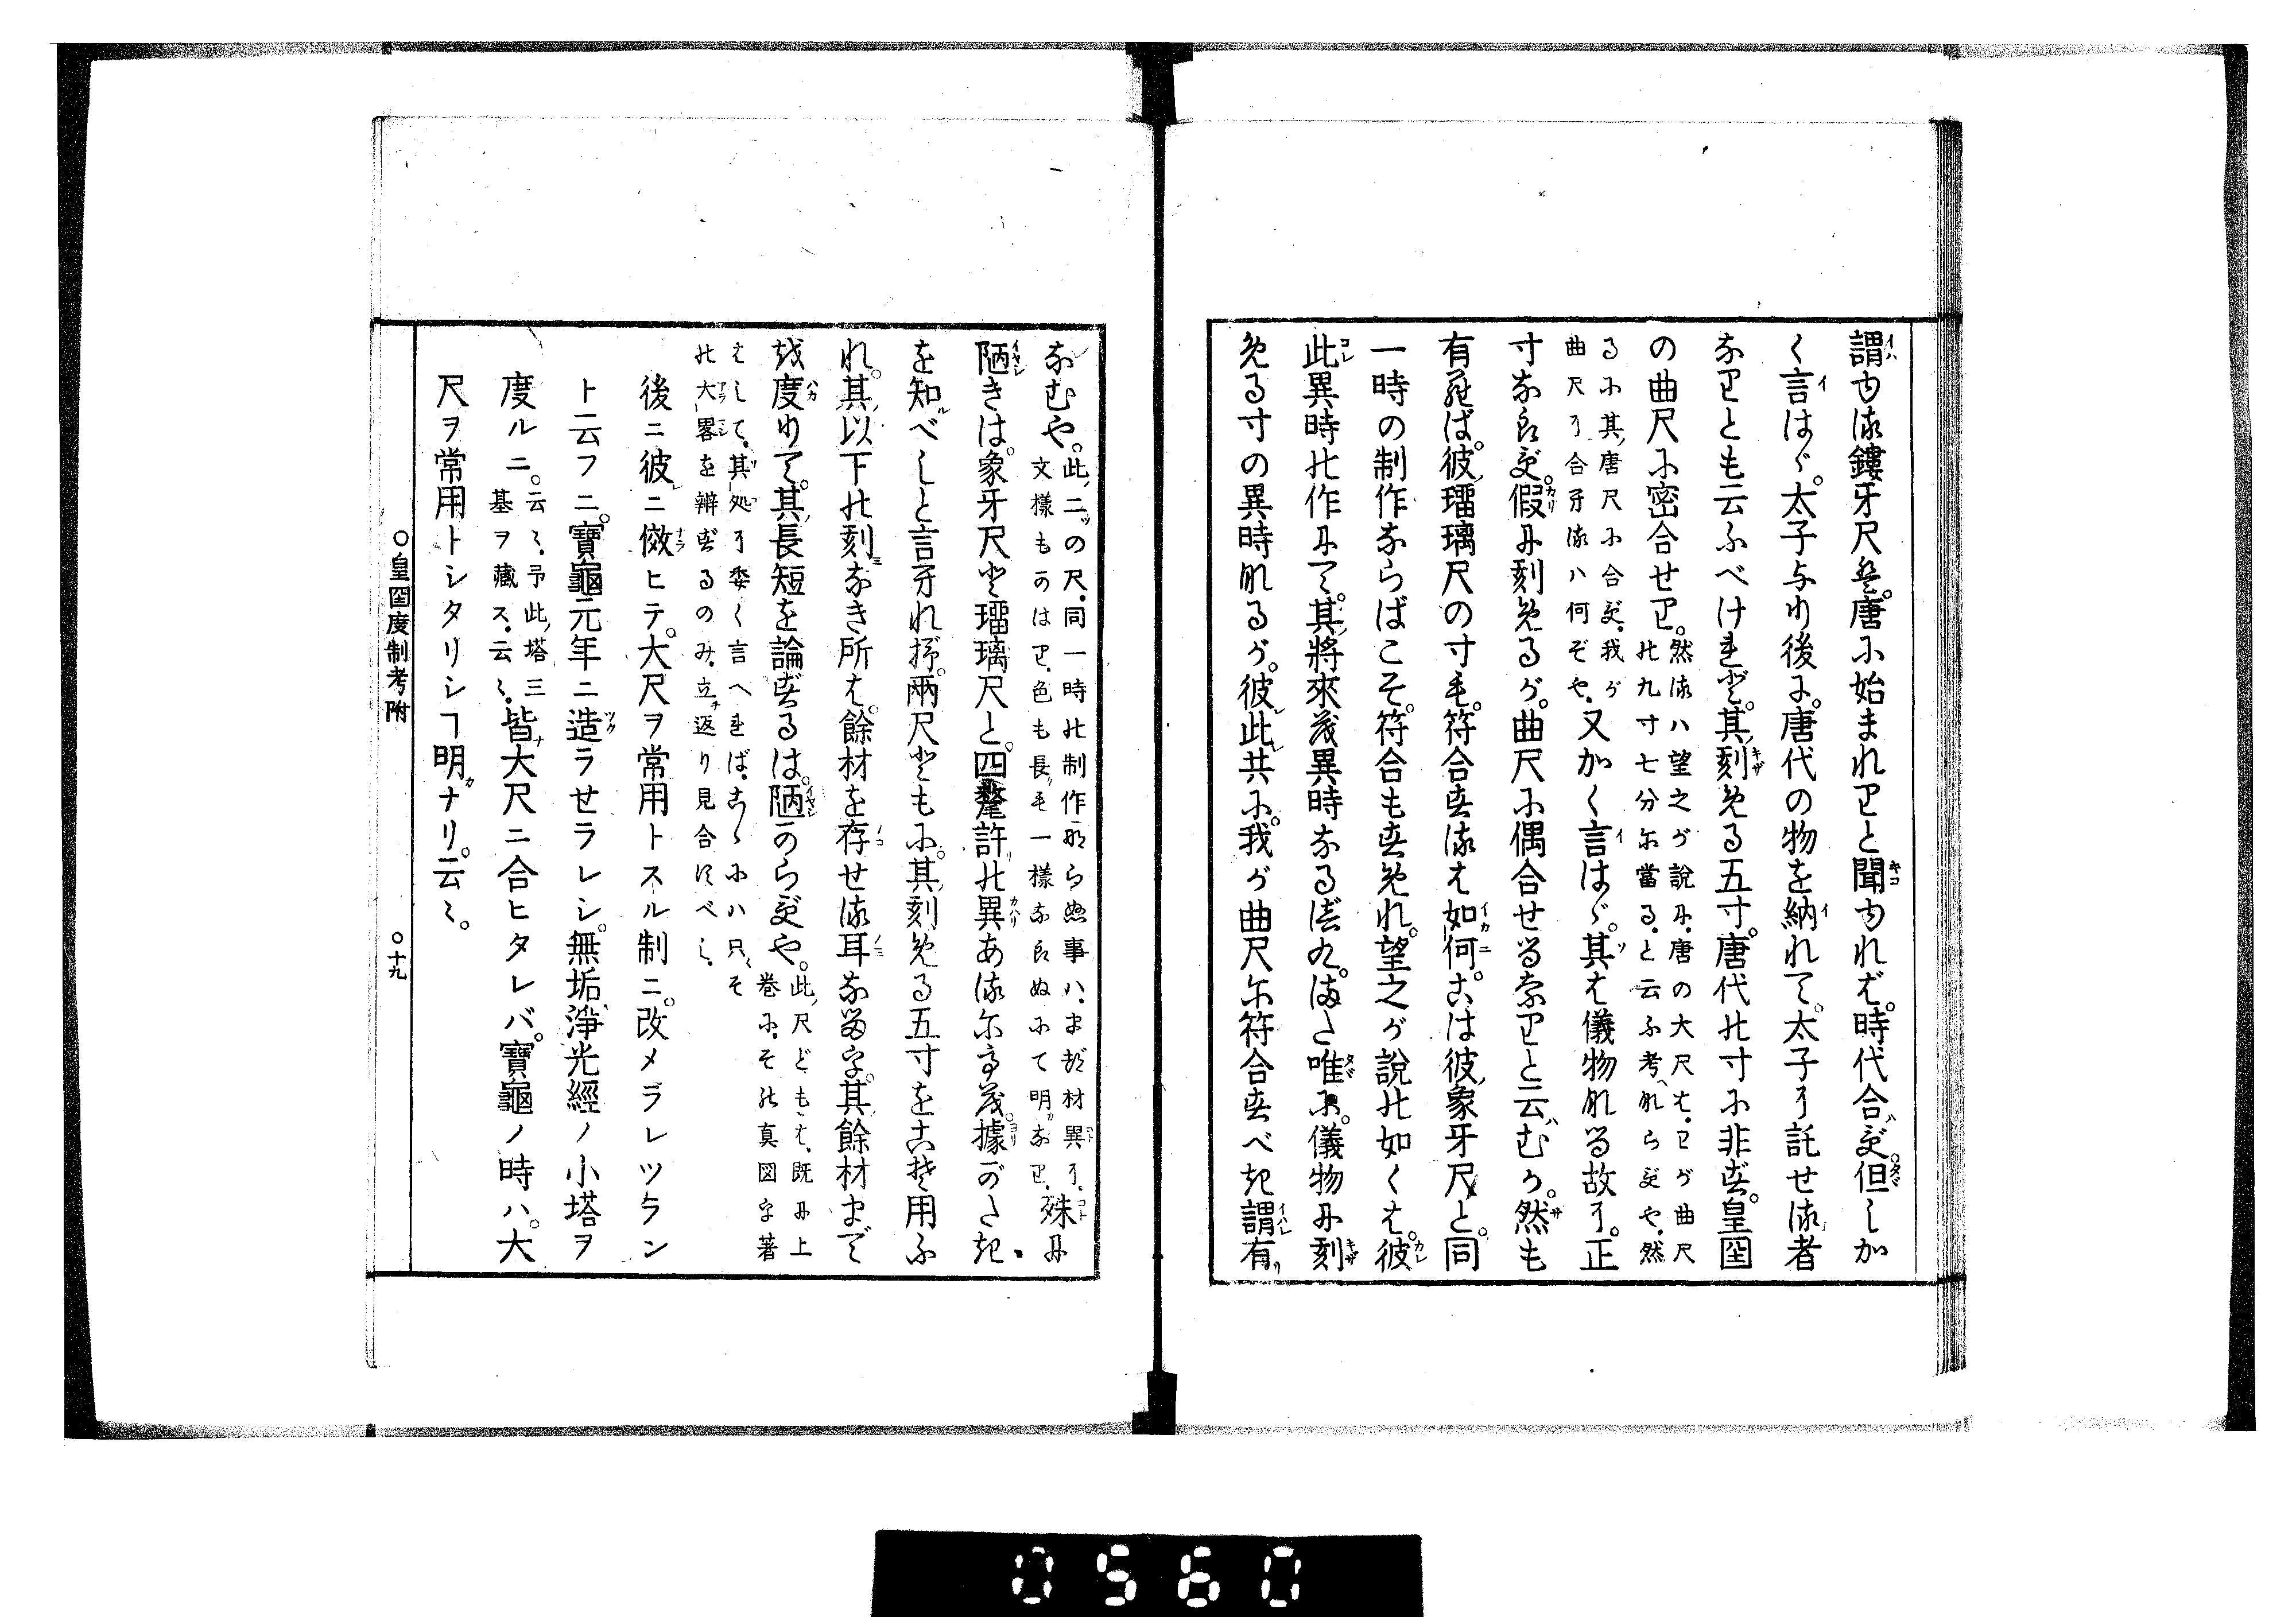 謂ゆる鏤牙尺は。唐に始まれりと聞ゆれば。時代合ず。但しか
く言はゞ。太子より後に。唐代の物を納れて。太子に託せる者
なりとも云ふべけれど。其刻める五寸。唐代の寸に非ず。皇国
の曲尺に密合せり。然るハ望之が説に。唐の大尺は。わが曲尺
の九寸七分に當る。と云ふ考へならずや。然
るに其唐尺に合ず。我が
曲尺に合するハ何ぞや。又かく言はゞ。其は儀物なる故に。正
寸ならず。假に刻めるが。曲尺に偶合せるなりと云むか。然も
有らば。彼瑠璃尺の寸も。符合するは如何。こは彼象牙尺と。同
一時の制作ならばこそ。符合もすめれ。望之が説の如くは。彼
此異時の作にて。其將來も異時なるをや。また唯に。儀物に刻
める寸の異時なるが。彼此共に。我が曲尺に符合すべき謂有
なむや。此二ッの尺。同一時の制作ならぬ事ハ。まづ材異に。
文様もかはり。色も長も一様ならぬにて明なり。殊に
陋きは。象牙尺と瑠璃尺と。四釐許の異あるに心も據がたき
を知べしと言れど。兩尺ともに。其刻める五寸をこそ用ふ
れ。其以下の刻なき所は。餘材を存せる耳なるを。其餘材まで
を度りて。其長短を論ずるは。陋からずや。此尺どもは。既に上
巻に。その真図を著
はして。其処に委く言へれば。こゝにハ只そ
の大畧を辨ずるのみ。立返り見合すべし。
後ニ彼ニ傚ヒテ。大尺ヲ常用トスル制ニ。改メラレツラン
ト云フニ。寶龜元年ニ造ラセラレシ。無垢淨光經ノ小塔ヲ
度ルニ。云〻。予此塔三
基ヲ藏ス。云〻。皆大尺ニ合ヒタレバ。寶龜ノ時ハ。大
尺ヲ常用トシタリシヿ明ナリ。云〻。
○皇国度制考附
○十九
0560